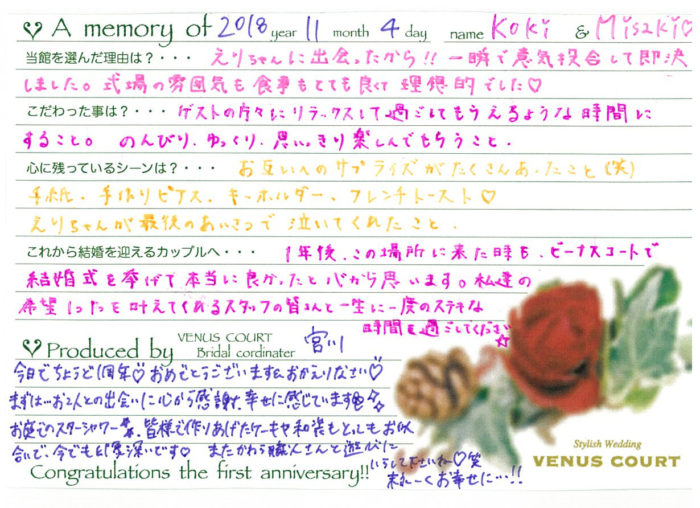 A memory of 2018 year 11 month 4 day name Koki & Misaki♡
当館を選んだ理由は？・・・ えりちゃんに出会ったから!! 一瞬で意気投合して即決
しました。式場の雰囲気も食事もとても良くて理想的でした♡
こだわった事は？・・・ ゲストの方々にリラックスして過ごしてもらえるような時間に
すること。 のんびり、ゆっくり、思いっきり楽しんでもらうこと。
心に残っているシーンは？・・・ お互いへのサプライズがたくさんあったこと(笑)
手紙、手作りピアス、キーホルダー、フレンチトースト♡
えりちゃんが最後のあいさつで泣いてくれたこと。
これから結婚を迎えるカップルへ・・・ 1年後、この場所に来た時も、ビーナスコートで
結婚式を挙げて本当に良かったと心から思います。私達の
希望1つ1つを叶えてくれるスタッフの皆さんと一生に一度のステキな
時間を過ごしてください☆
Produced by VENUS COURT Bridal cordinater 宮川
今日でちょうど1周年♡おめでとうございます&おかえりなさい♡
まずは…お2人との出会いに心から感謝、幸せに感じています
お庭でのスターシャワー、皆様で作りあげたケーキや和装もとってもお似
合いで、今でも印象深いです♡ またかわら職人さんと遊びに
いらしてくださいね♡笑
Congratulations the first anniversary!! 末永ーくお幸せに…!!
Stylish Wedding
VENUS COURT